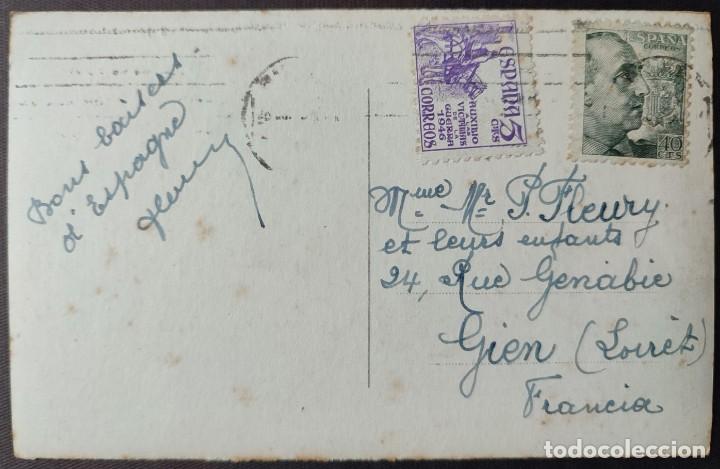 Bons baisers
d'Espagne
ESPAÑA 5
CTS
AUXILIO
A LAS
VICTIMAS
DE LA
GUERRA
1946
CORREOS
ESPAÑA
CORREOS
40
CTS
Mme Mr P. Fleury
et leurs enfants
24, Rue Genabie
Gien (Loiret)
Francia
todocoleccion.net